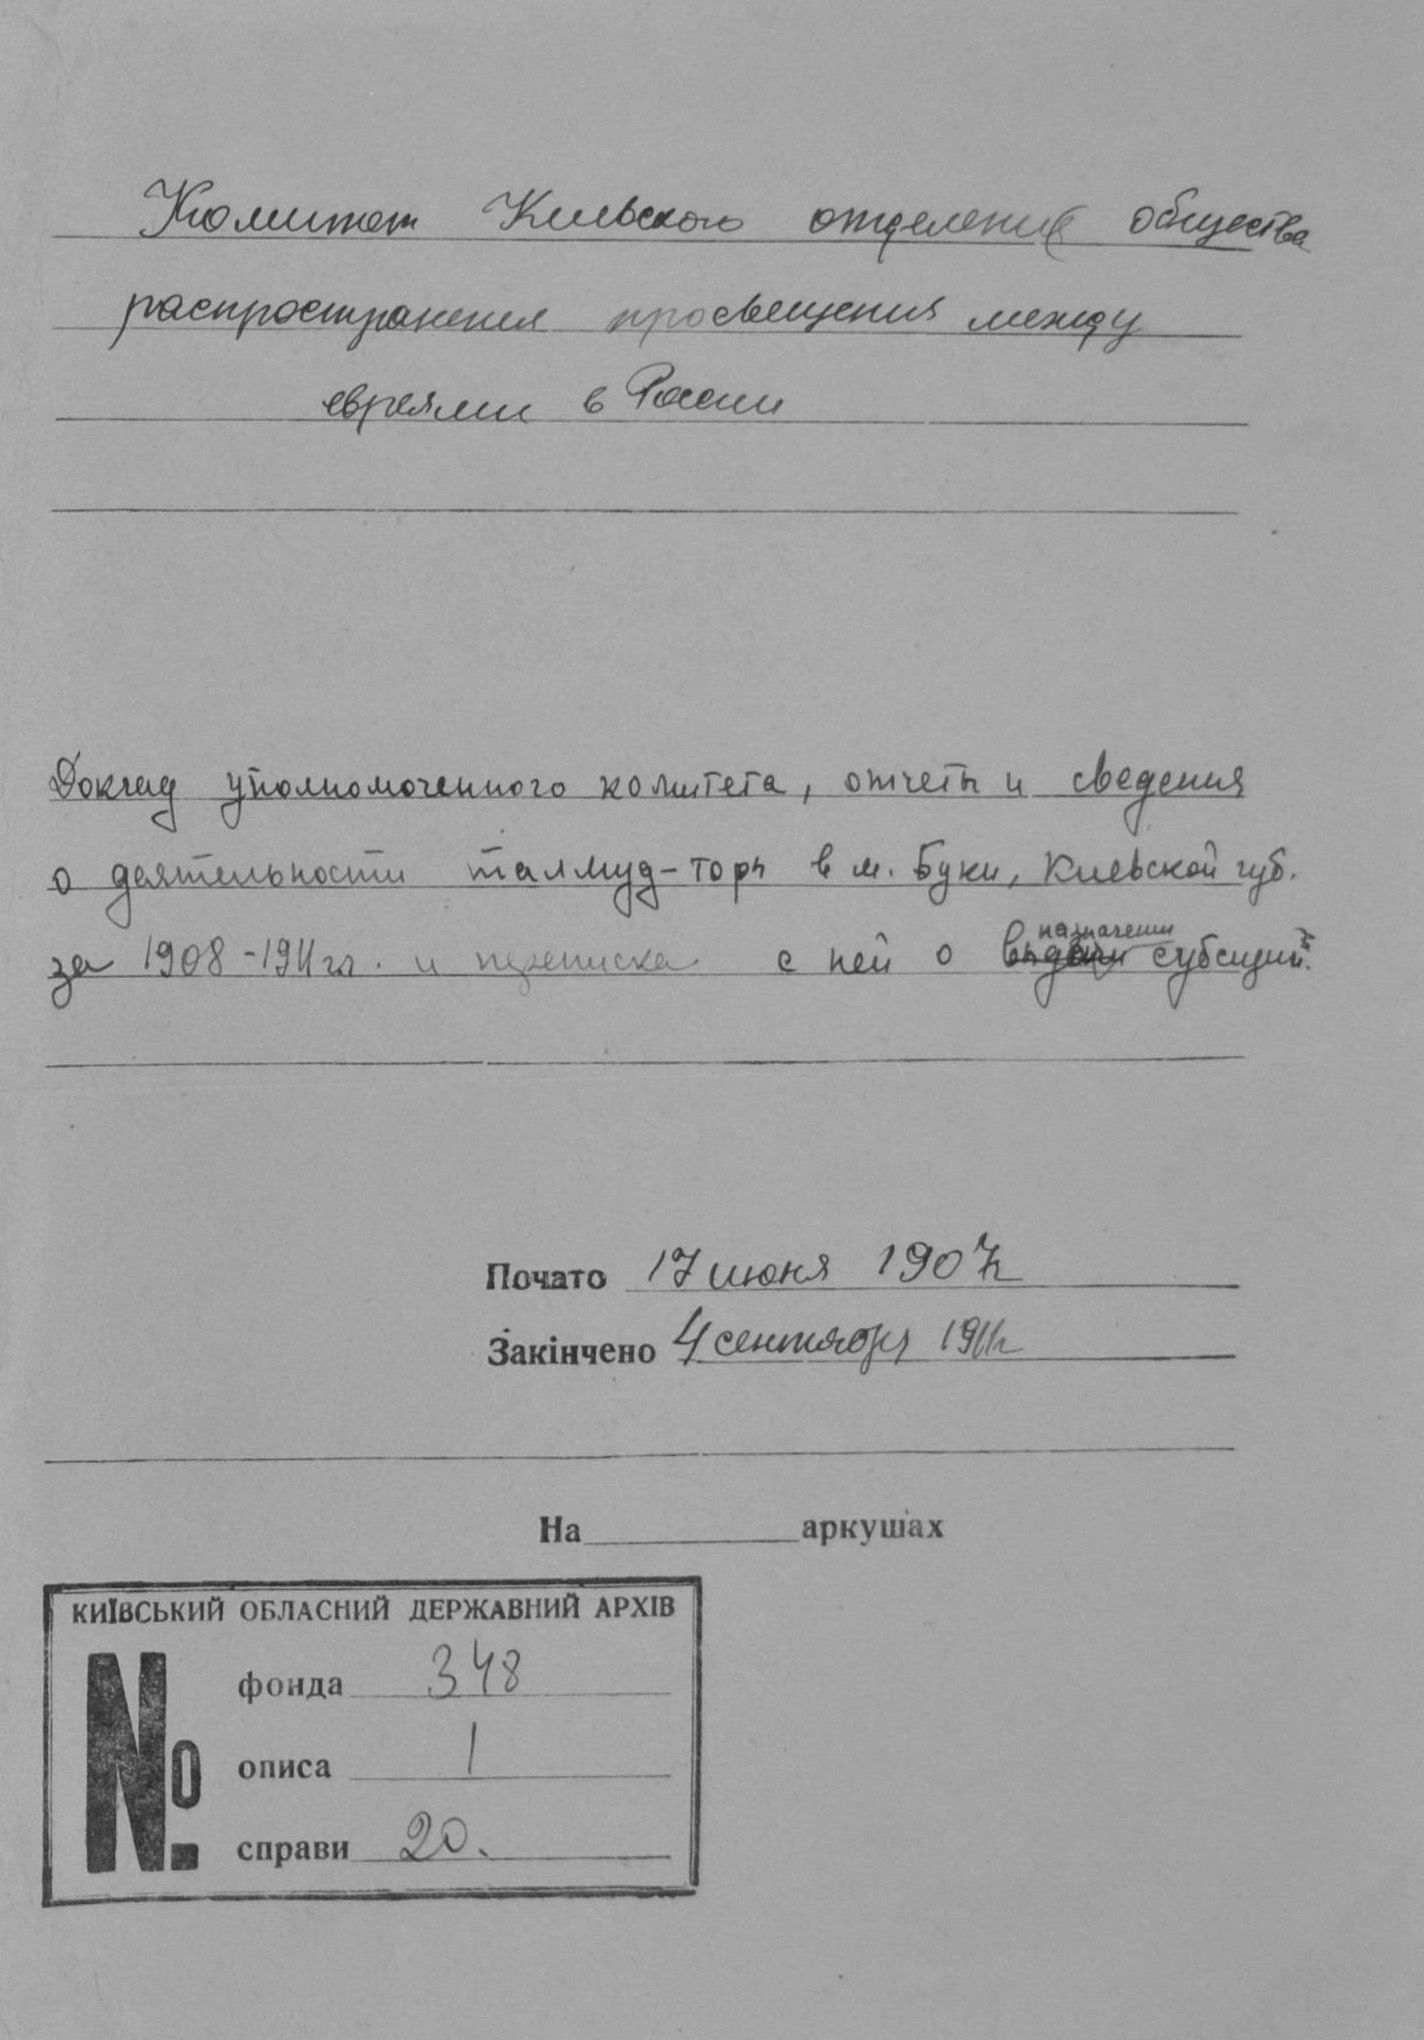 Комитет Киевского отделения общества
распространения просвещения между
евреями в России
Доклад уполномоченного комитета, отчеты и сведения
о деятельности талмуд-торы в м. Буки, Киевской губ.
назначении
за 1908-1911 гг. и переписка с ней о выдачи субсидий.
Почато 17 июня 1907г
Закінчено 4 сентября 1911г
На аркушах
КИЇВСЬКИЙ ОБЛАСНИЙ ДЕРЖАВНИЙ АРХІВ
№
фонда 348
описа 1
справи 20.